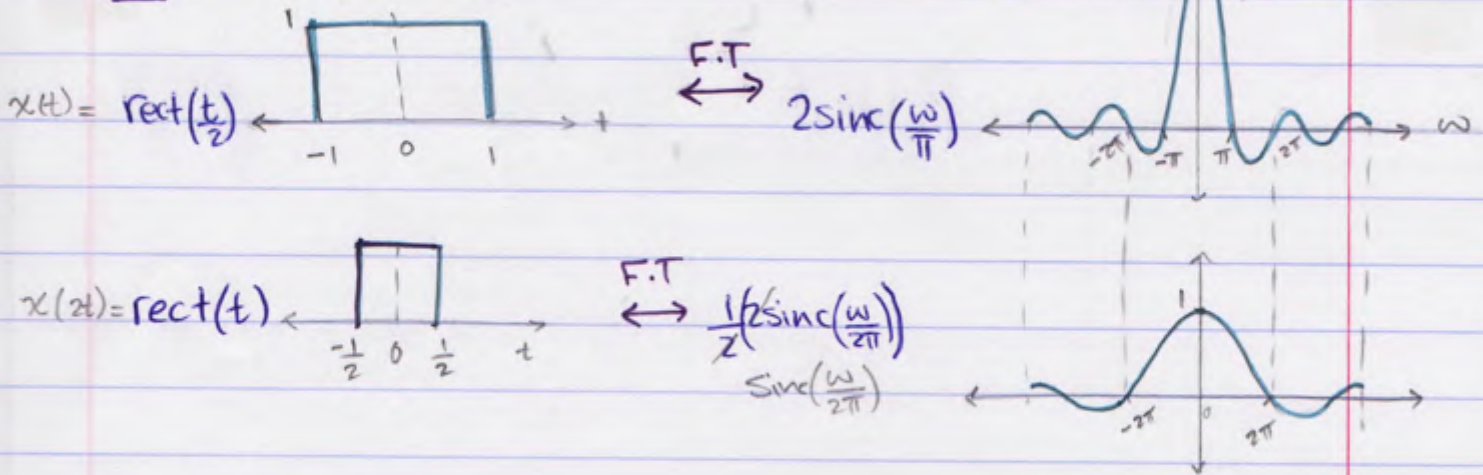 1
x(t) = rect(t/2)
-1 0 1 t
F.T
2sinc(ω/π)
-2π -π π 2π ω
x(2t) = rect(t)
-1/2 0 1/2 t
F.T
1/2(2sinc(ω/2π))
Sinc(ω/2π)
1
-2π 0 2π